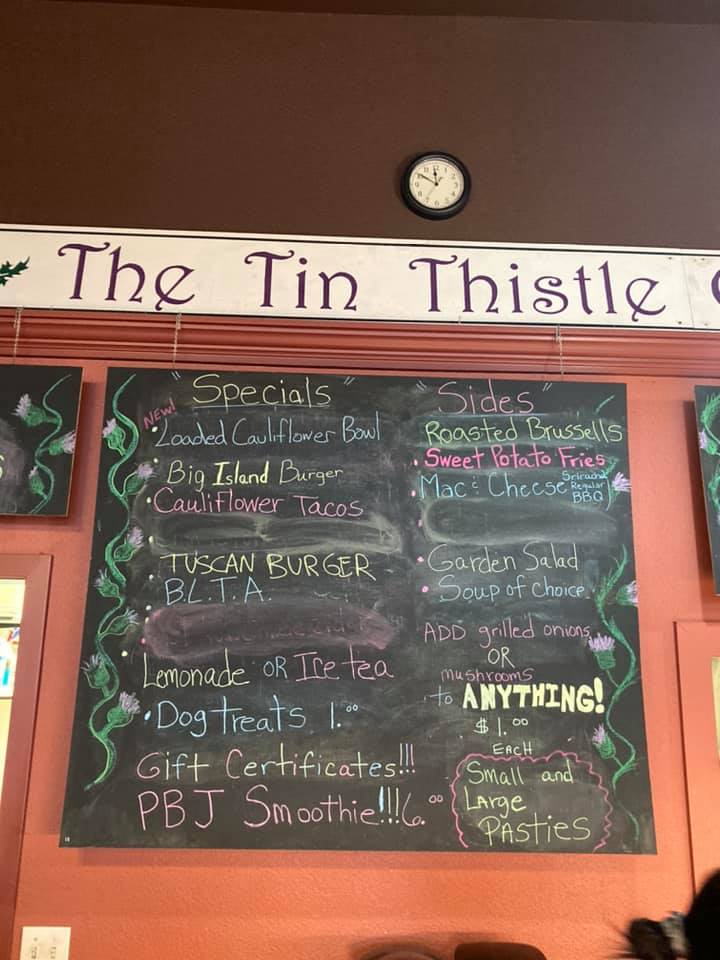 The Tin Thistle
"Specials"
NEW!
Loaded Cauliflower Bowl
Big Island Burger
Cauliflower Tacos
TUSCAN BURGER
B.L.T.A.
Lemonade OR Ice tea
Dog treats 1.00
Gift Certificates!!!
PBJ Smoothie!!! 6.00
"Sides"
Roasted Brussells
Sweet Potato Fries
Mac & Cheese
Sriracha
Regular
BBQ
Garden Salad
Soup of Choice
ADD grilled onions
OR
mushrooms
to ANYTHING!
$1.00
EACH
Small and
Large
PASTIES